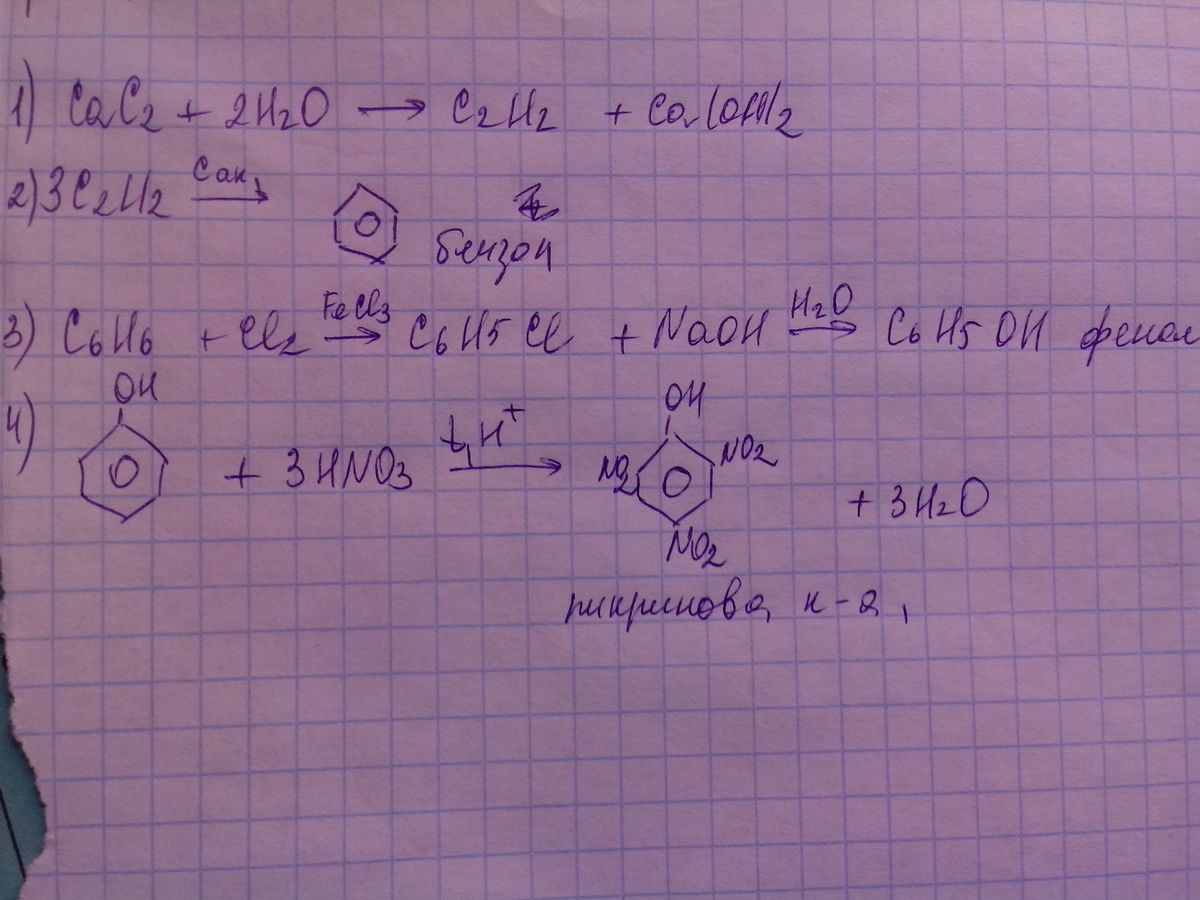 1) CaC2 + 2H2O → C2H2 + Ca(OH)2
2) 3C2H2 Cак, →
бензол
3) C6H6 + Cl2 FeCl3 → C6H5Cl + NaOH H2O → C6H5OH фенол
OH
4) + 3HNO3 t, H+ →
OH
NO2 NO2
+ 3H2O
NO2
пикринова, к-а,